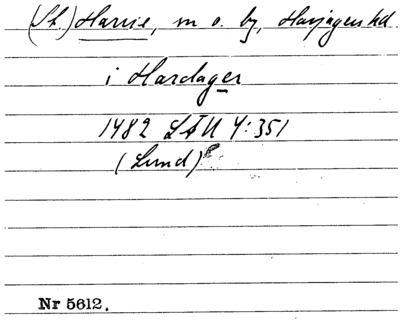 (St.) Harrie, sn o. by, Harjagers hd
i Hardager
1482 LÄU 4:351
(Lund)
Nr 5612.